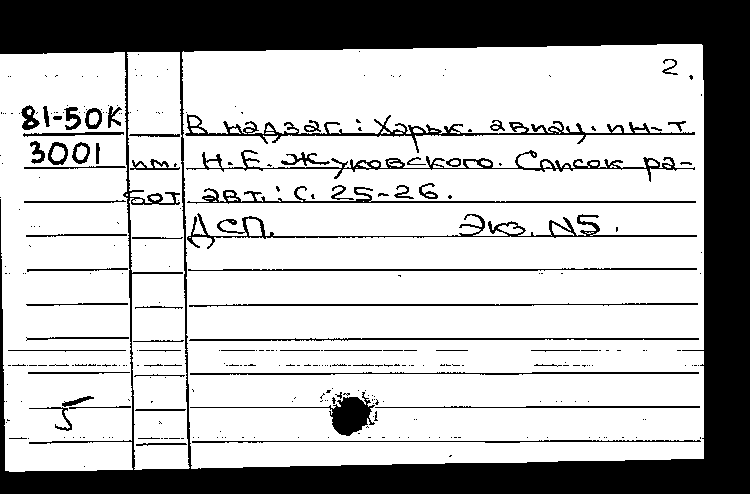 2.
81-50К В надзаг.: Харьк. авиац. ин-т
3001 им. Н.Е. Жуковского. Список ра-
бот авт.: с. 25-26.
ДСП. Экз. N5.
5